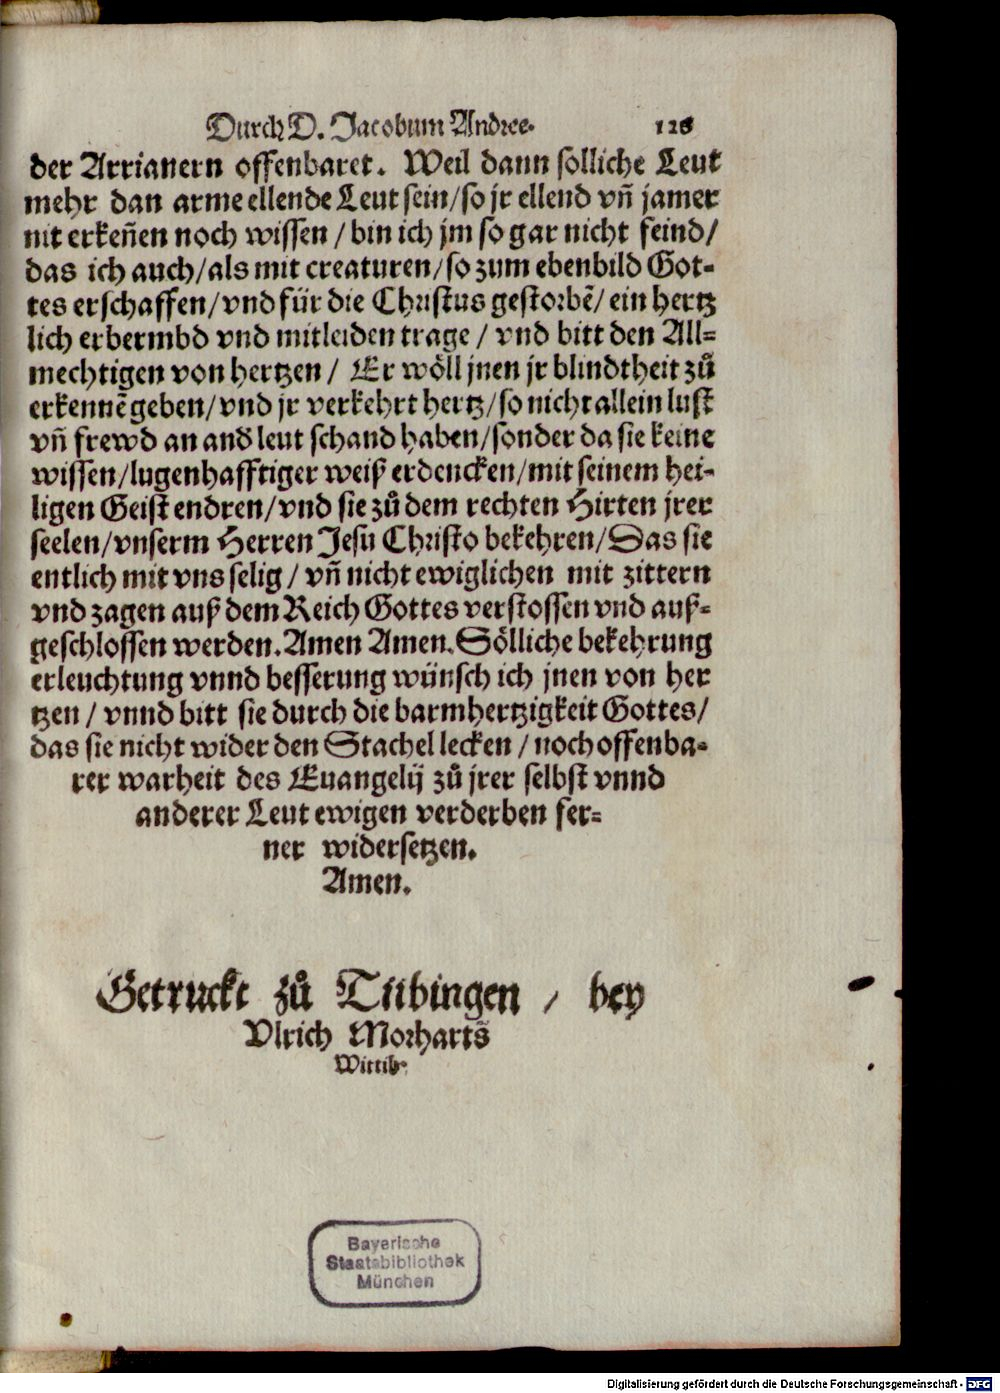 Durch D. Jacobum Andree. 126
der Arrianern offenbaret. Weil dann solliche Leut
mehr dan arme ellende Leut sein/so jr ellend vñ jamer
nit erkeñen noch wissen / bin ich jm so gar nicht feind/
das ich auch/als mit creaturen/so zum ebenbild Got-
tes erschaffen/vnd für die Christus gestorbē/ein hertz
lich erbermbd vnd mitleiden trage / vnd bitt den All-
mechtigen von hertzen / Er wöll jnen jr blindtheit zů
erkennē geben/vnd jr verkehrt hertz/so nicht allein lust
vñ frewd an and leut schand haben/sonder da sie keine
wissen/lugenhafftiger weiß erdencken/mit seinem hei-
ligen Geist endren/vnd sie zů dem rechten Hirten jrer
seelen/vnserm Herren Jesu Christo bekehren/Das sie
entlich mit vns selig / vñ nicht ewiglichen mit zittern
vnd zagen auß dem Reich Gottes verstossen vnd auß-
geschlossen werden. Amen Amen. Sölliche bekehrung
erleuchtung vnnd besserung wünsch ich jnen von her
tzen / vnnd bitt sie durch die barmhertzigkeit Gottes/
das sie nicht wider den Stachel lecken / noch offenba-
rer warheit des Euangelij zů jrer selbst vnnd
anderer Leut ewigen verderben fer-
ner widersetzen.
Amen.
Getruckt zů Tübingen / bey
Vlrich Morharts
Wittib.
Bayerische
Staatsbibliothek
München
Digitalisierung gefördert durch die Deutsche Forschungsgemeinschaft - DFG